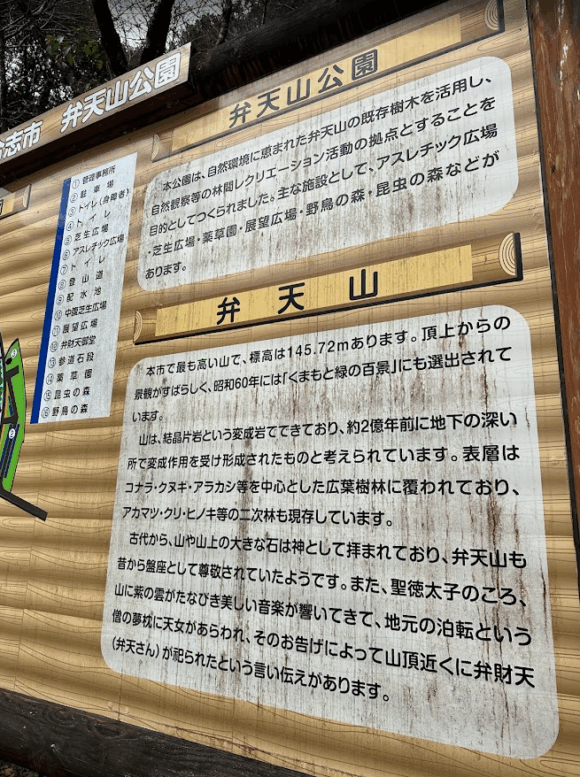 志市 弁天山公園
弁天山公園
本公園は、自然環境に恵まれた弁天山の既存樹木を活用し、
自然観察等の林間レクリエーション活動の拠点とすることを
目的としてつくられました。主な施設として、アスレチック広場
・芝生広場・薬草園・展望広場・野鳥の森・昆虫の森などが
あります。
①管理事務所
②駐車場
③トイレ(身障者)
④トイレ
⑤芝生広場
⑥アスレチック広場
⑦トイレ
⑧登山道
⑨配水池
⑩中腹芝生広場
⑪展望広場
⑫弁財天御堂
⑬参道石段
⑭薬草園
⑮昆虫の森
⑯野鳥の森
弁天山
本市で最も高い山で、標高は145.72mあります。頂上からの
景観がすばらしく、昭和60年には「くまもと緑の百景」にも選出されて
います。
山は、結晶片岩という変成岩でできており、約2億年前に地下の深い
所で変成作用を受け形成されたものと考えられています。表層は
コナラ・クヌギ・アラカシ等を中心とした広葉樹林に覆われており、
アカマツ・クリ・ヒノキ等の二次林も現存しています。
古代から、山や山上の大きな石は神として拝まれており、弁天山も
昔から盤座として尊敬されていたようです。また、聖徳太子のころ、
山に紫の雲がたなびき美しい音楽が響いてきて、地元の泊転という
僧の夢枕に天女があらわれ、そのお告げによって山頂近くに弁財天
(弁天さん)が祀られたという言い伝えがあります。